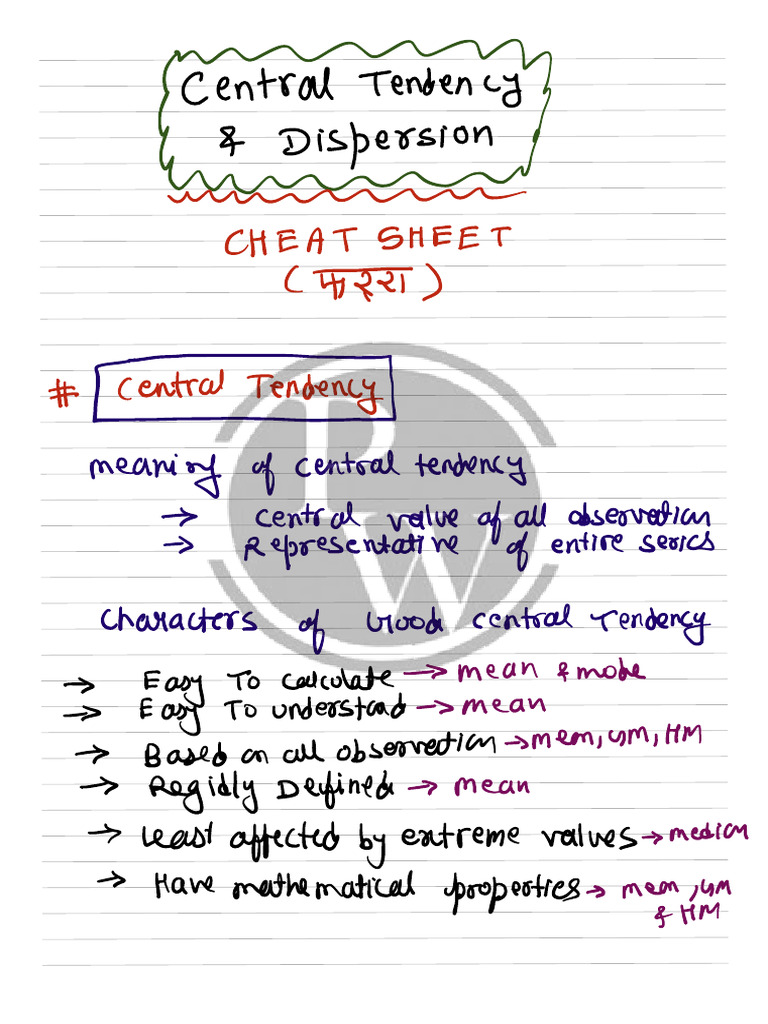 Central Tendency
& Dispersion
CHEAT SHEET
(फर्रा)
# Central Tendency
meaning of central tendency
→ central value of all observation
→ Representative of entire series
Characters of Good central Tendency
→ Easy To calculate → mean & mode
→ Easy To understand → mean
→ Based on all observation → mean, GM, HM
→ Regidly Defined → mean
→ Least affected by extreme values → median
→ Have mathematical properties → mean, GM
& HM
PW